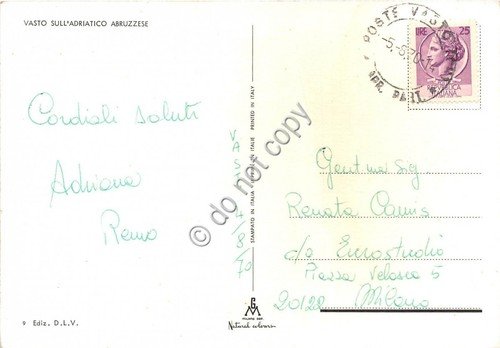 VASTO SULL'ADRIATICO ABRUZZESE
Cordiali saluti
Adriana
Remo
9 Ediz. D.L.V.
VASTO 4/8/70
STAMPATO IN ITALIA PRINTED IN ITALY
do not copy
GM
MILANO
Natural colours
POSTE VASTO
-5.8.70
LIRE 25
REPUBBLICA ITALIANA
Gent.ma Sig.
Renata Camis
c/o Eurostudio
Piazza Velasca 5
20122 Milano